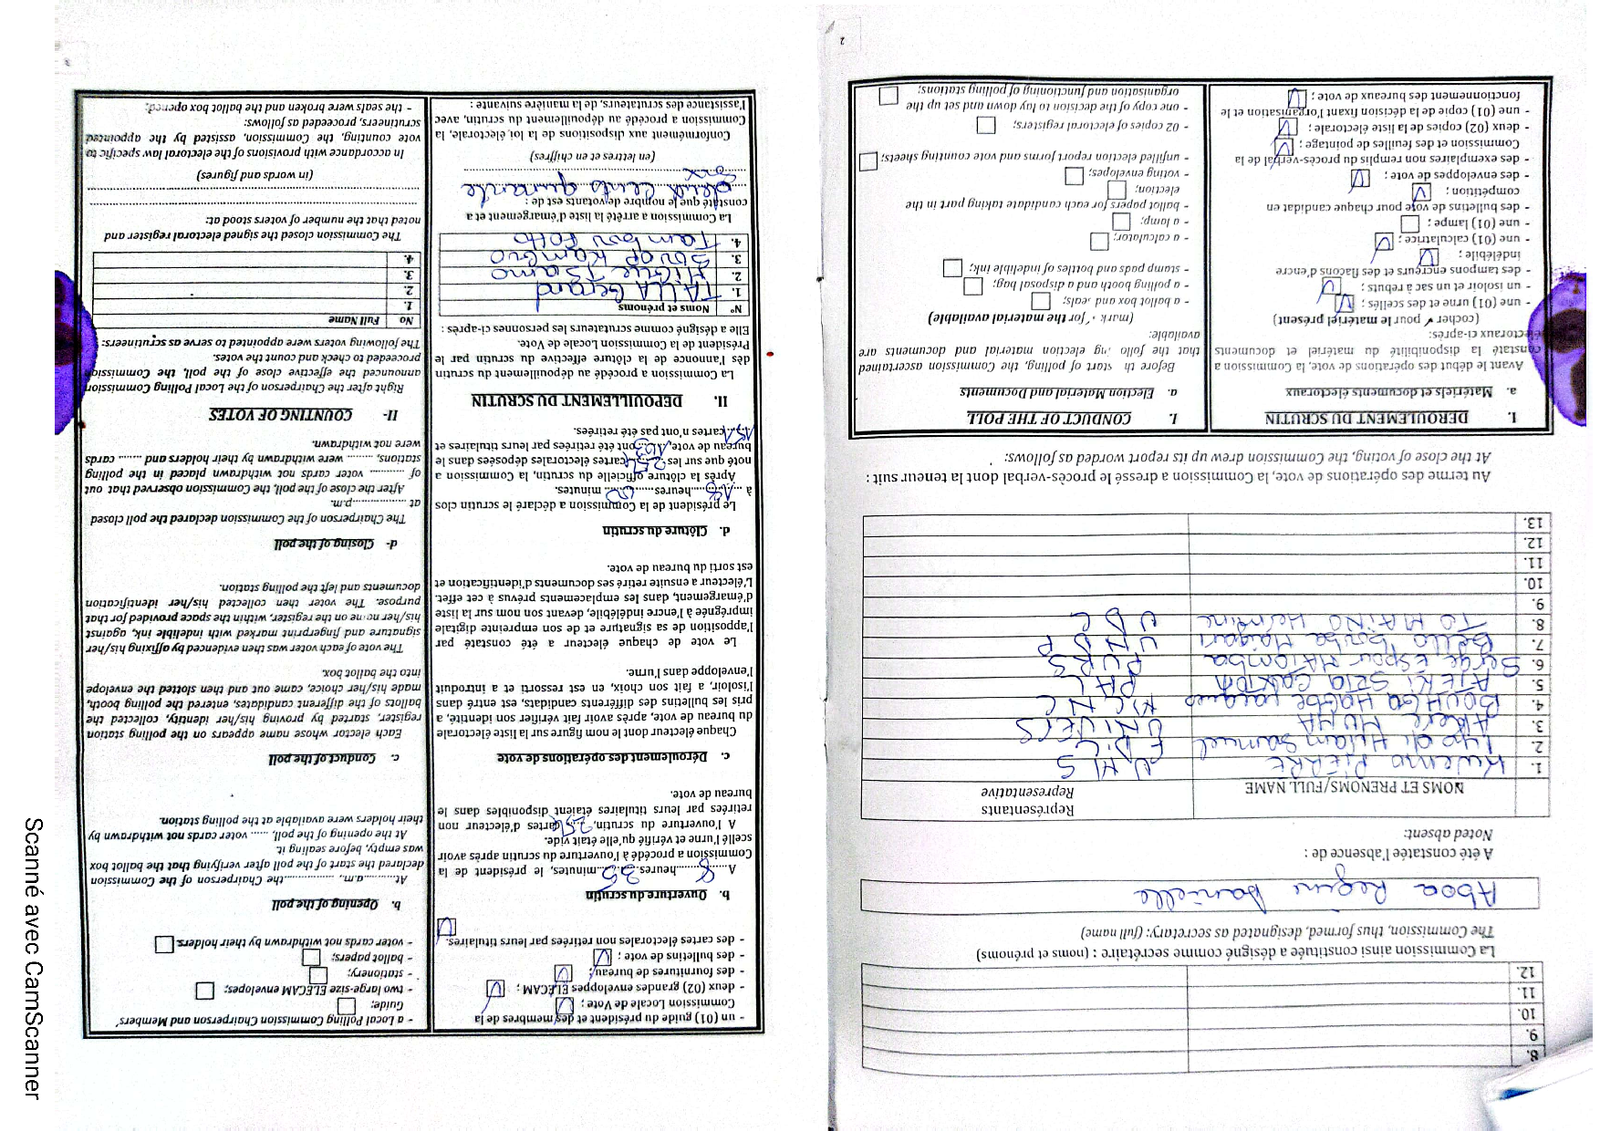 8.
9.
10.
11.
12.
La Commission ainsi constituée a désigné comme secrétaire : (noms et prénoms)
The Commission, thus formed, designated as secretary: (full name)
Aboa Regine Danielle
A été constatée l'absence de :
Noted absent:
NOMS ET PRENOMS/FULL NAME
Représentants
Representative
1. Kuemo PIERRE UMS
2. Hiram Samuel
3. Akere MUNA UNIVERS
4. BOUHGA HAGBE Jacques MCNC
5. ATEKI SETA CAXTON PAL
6. Serge ESPOIR MATOMBA PURS
7. Bello Bouba Maigari UNDP
8. TOMAINO Hermine UDC
9.
10.
11.
12.
13.
Au terme des opérations de vote, la Commission a dressé le procès-verbal dont la teneur suit :
At the close of voting, the Commission drew up its report worded as follows:
I. DEROULEMENT DU SCRUTIN
a. Matériels et documents électoraux
Avant le début des opérations de vote, la Commission a
constaté la disponibilité du matériel et documents
électoraux ci-après:
(cocher ✓ pour le matériel présent)
- une (01) urne et des scellés ;
- un isoloir et un sac à rebuts ;
- des tampons encreurs et des flacons d'encre
indélébile ;
- une (01) calculatrice ;
- une (01) lampe ;
- des bulletins de vote pour chaque candidat en
compétition ;
- des enveloppes de vote ;
- des exemplaires non remplis du procès-verbal de la
Commission et des feuilles de pointage ;
- deux (02) copies de la liste électorale ;
- une (01) copie de la décision fixant l'organisation et le
fonctionnement des bureaux de vote ;
I. CONDUCT OF THE POLL
a. Election Material and Documents
Before th start of polling, the Commission ascertained
that the follo ing election material and documents are
available:
(mark ✓ for the material available)
- a ballot box and seals;
- a polling booth and a disposal bag;
- stamp pads and bottles of indelible ink;
- a calculator;
- a lamp;
- ballot papers for each candidate taking part in the
election;
- voting envelopes;
- unfilled election report forms and vote counting sheets;
- 02 copies of electoral registers;
- one copy of the decision to lay down and set up the
organisation and functioning of polling stations;
2
- un (01) guide du président et des membres de la
Commission Locale de Vote ;
- deux (02) grandes enveloppes ELECAM ;
- des fournitures de bureau;
- des bulletins de vote ;
- des cartes électorales non retirées par leurs titulaires.
b. Ouverture du scrutin
A 8 heures 25 minutes, le président de la
Commission a procédé à l'ouverture du scrutin après avoir
scellé l'urne et vérifié qu'elle était vide.
A l'ouverture du scrutin, 254 cartes d'électeur non
retirées par leurs titulaires étaient disponibles dans le
bureau de vote.
c. Déroulement des opérations de vote
Chaque électeur dont le nom figure sur la liste électorale
du bureau de vote, après avoir fait vérifier son identité, a
pris les bulletins des différents candidats, est entré dans
l'isoloir, a fait son choix, en est ressorti et a introduit
l'enveloppe dans l'urne.
Le vote de chaque électeur a été constaté par
l'apposition de sa signature et de son empreinte digitale
imprégnée à l'encre indélébile, devant son nom sur la liste
d'émargement, dans les emplacements prévus à cet effet.
L'électeur a ensuite retiré ses documents d'identification et
est sorti du bureau de vote.
d. Clôture du scrutin
Le président de la Commission a déclaré le scrutin clos
à 18 heures 00 minutes.
Après la clôture officielle du scrutin, la Commission a
noté que sur les 254 cartes électorales déposées dans le
bureau de vote, 103 ont été retirées par leurs titulaires et
151 cartes n'ont pas été retirées.
II. DEPOUILLEMENT DU SCRUTIN
La Commission a procédé au dépouillement du scrutin
dès l'annonce de la clôture effective du scrutin par le
Président de la Commission Locale de Vote.
Elle a désigné comme scrutateurs les personnes ci-après :
N° Noms et prénoms
1. TALLA Gerard
2. TSAMO
3. SUOP KAMBRO
4. Tambou Fotho
La Commission a arrêté la liste d'émargement et a
constaté que le nombre de votants est de :
deux cents quarante
six
(en lettres et en chiffres)
Conformément aux dispositions de la loi électorale, la
Commission a procédé au dépouillement du scrutin, avec
l'assistance des scrutateurs, de la manière suivante :
- a Local Polling Commission Chairperson and Members'
Guide;
- two large-size ELECAM envelopes;
- stationery;
- ballot papers;
- voter cards not withdrawn by their holders.
b. Opening of the poll
At..........a.m., ............the Chairperson of the Commission
declared the start of the poll after verifying that the ballot box
was empty, before sealing it.
At the opening of the poll, ...... voter cards not withdrawn by
their holders were available at the polling station.
c. Conduct of the poll
Each elector whose name appears on the polling station
register, started by proving his/her identity, collected the
ballots of the different candidates, entered the polling booth,
made his/her choice, came out and then slotted the envelope
into the ballot box.
The vote of each voter was then evidenced by affixing his/her
signature and fingerprint marked with indelible ink, against
his/her name on the register, within the space provided for that
purpose. The voter then collected his/her identification
documents and left the polling station.
d- Closing of the poll
The Chairperson of the Commission declared the poll closed
at ..................p.m.
After the close of the poll, the Commission observed that out
of .......... voter cards not withdrawn placed in the polling
stations, ......... were withdrawn by their holders and ........ cards
were not withdrawn.
II- COUNTING OF VOTES
Right after the Chairperson of the Local Polling Commission
announced the effective close of the poll, the Commission
proceeded to check and count the votes.
The following voters were appointed to serve as scrutineers:
No Full Name
1.
2.
3.
4.
The Commission closed the signed electoral register and
noted that the number of voters stood at:
(in words and figures)
In accordance with provisions of the electoral law specific to
vote counting, the Commission, assisted by the appointed
scrutineers, proceeded as follows:
- the seals were broken and the ballot box opened;
Scanné avec CamScanner